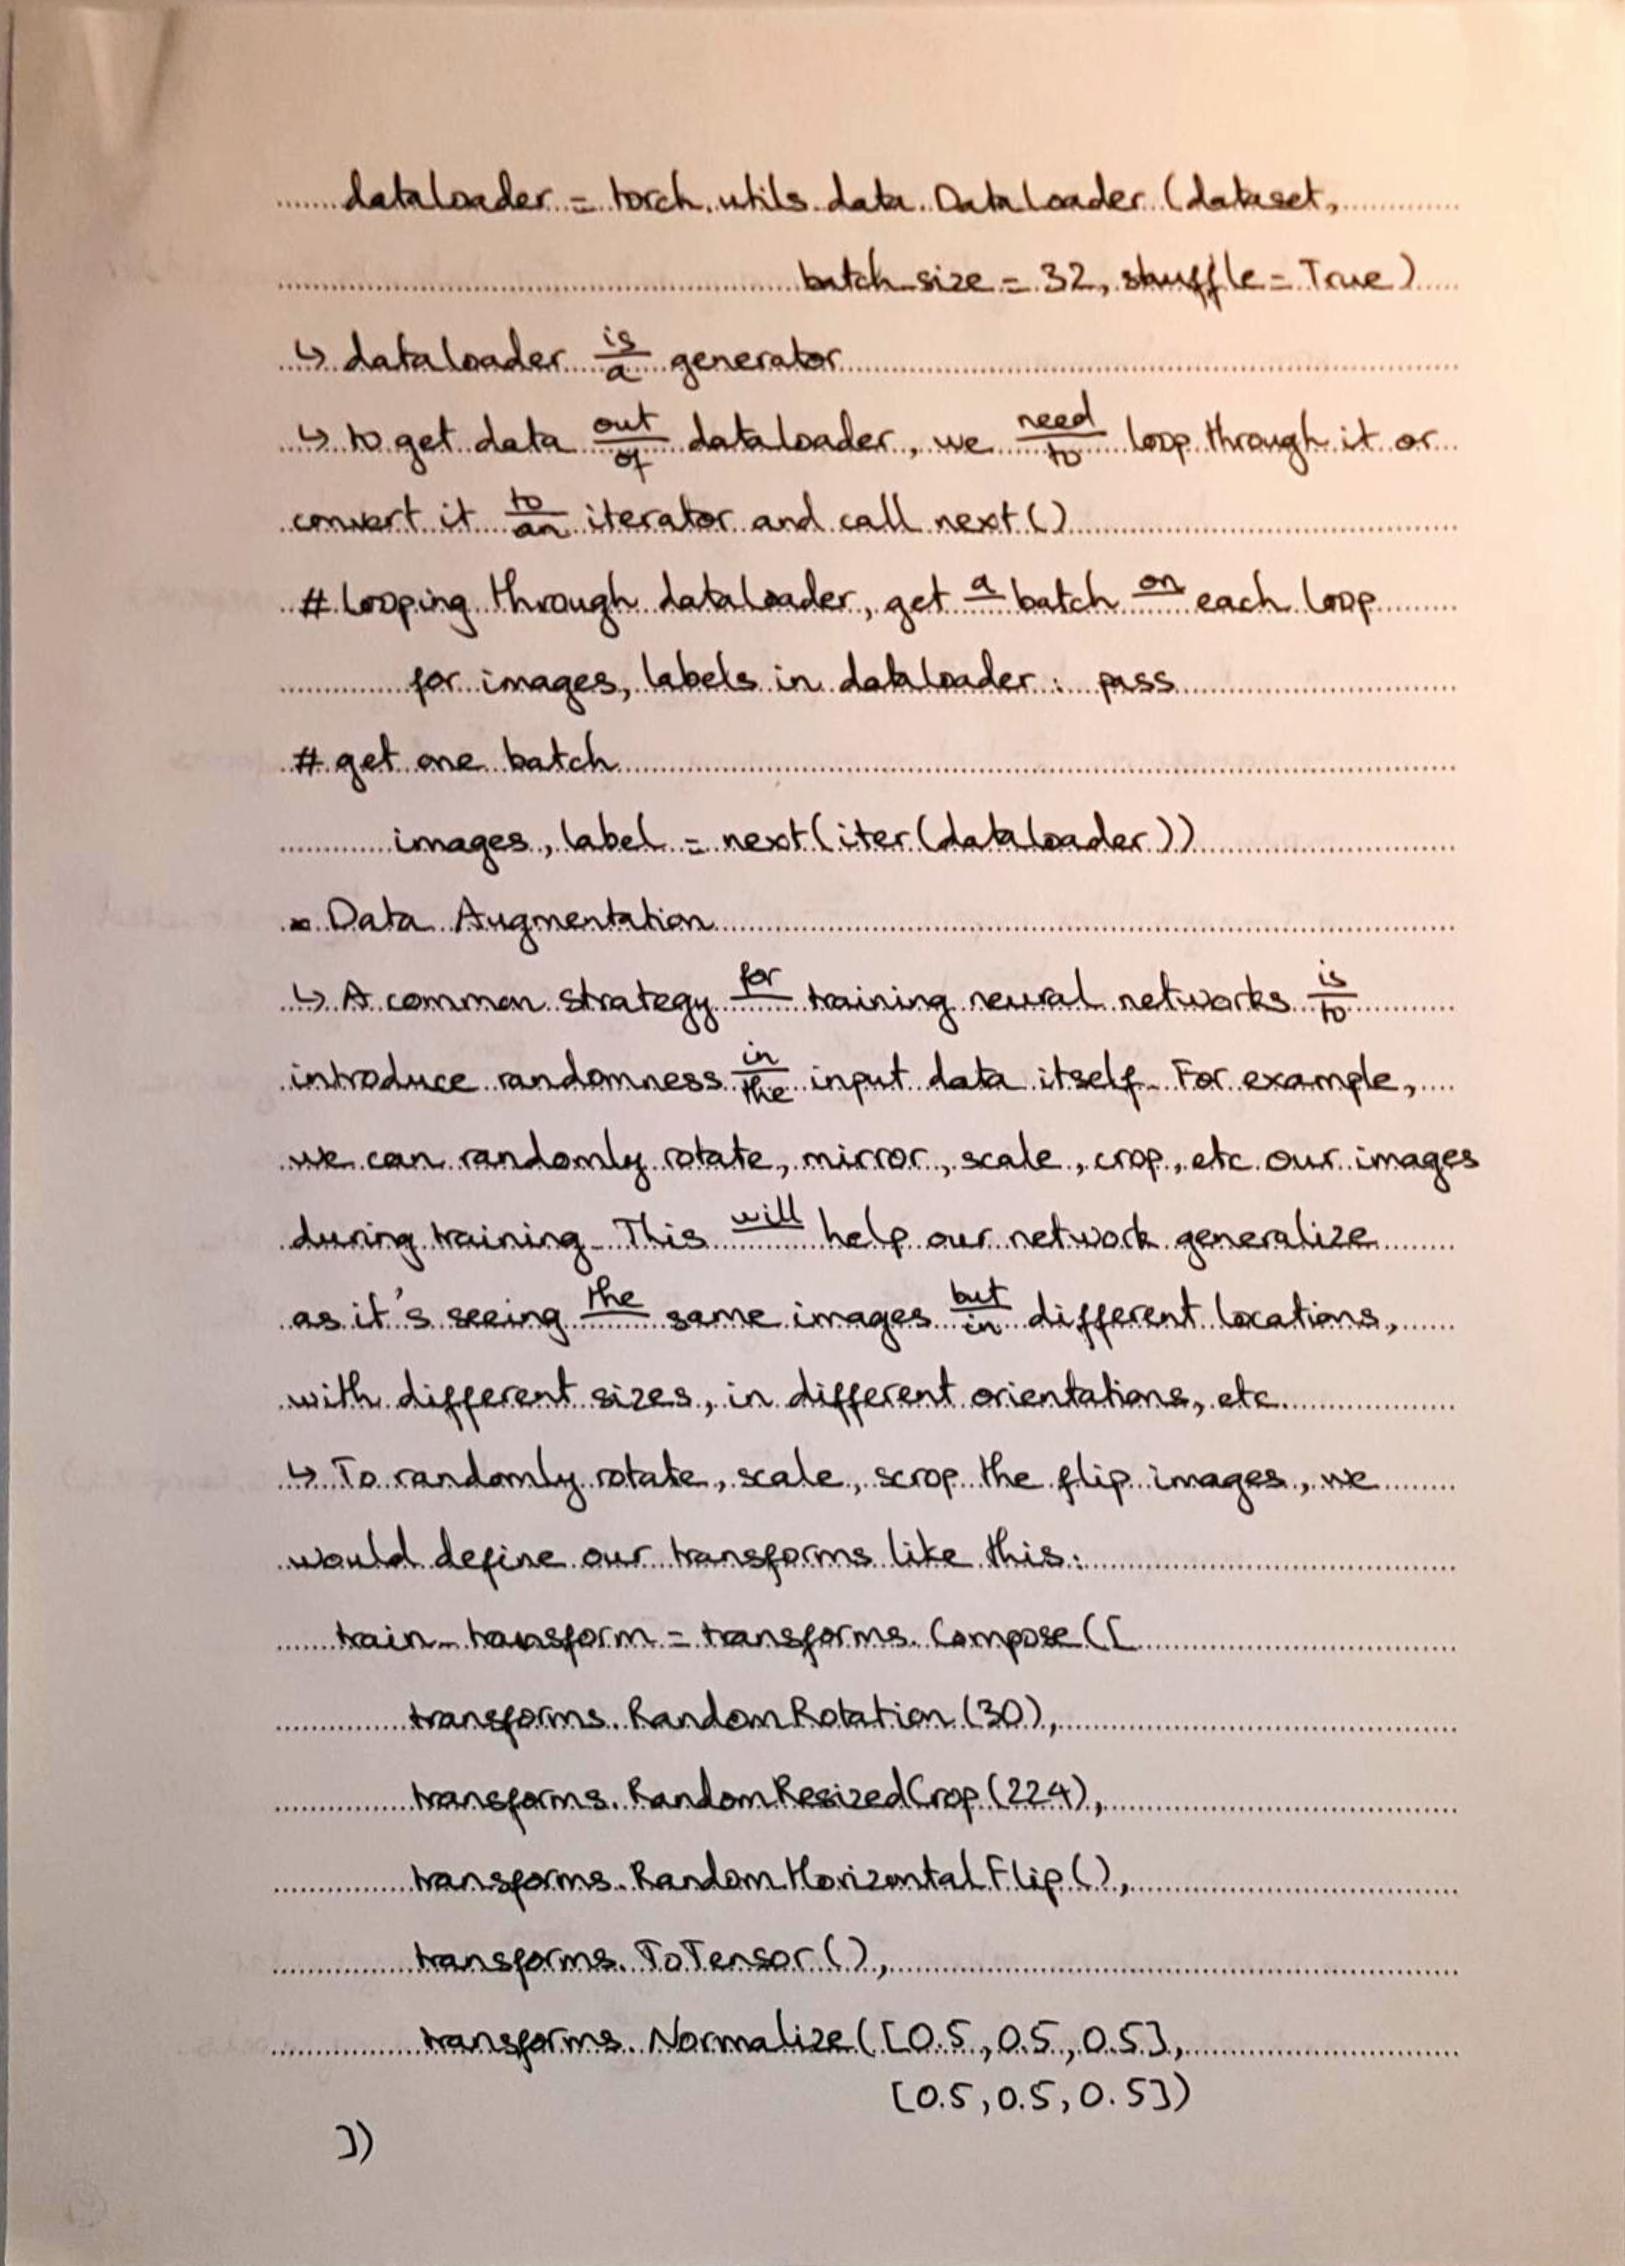 dataloader = torch.utils.data.DataLoader(dataset,
batch_size = 32, shuffle = True)
↳ dataloader is a generator
↳ to get data out of dataloader, we need to loop through it or
convert it to an iterator and call next()
# looping through dataloader, get a batch on each loop
for images, labels in dataloader: pass
# get one batch
images, label = next(iter(dataloader))
* Data Augmentation
↳ A common strategy for training neural networks is to
introduce randomness in the input data itself. For example,
we can randomly rotate, mirror, scale, crop, etc our images
during training. This will help our network generalize
as it's seeing the same images but in different locations,
with different sizes, in different orientations, etc.
↳ To randomly rotate, scale, scrop the flip images, we
would define our transforms like this:
train_transform = transforms.Compose([
transforms.RandomRotation(30),
transforms.RandomResizedCrop(224),
transforms.RandomHorizontalFlip(),
transforms.ToTensor(),
transforms.Normalize([0.5, 0.5, 0.5],
[0.5, 0.5, 0.5])
])